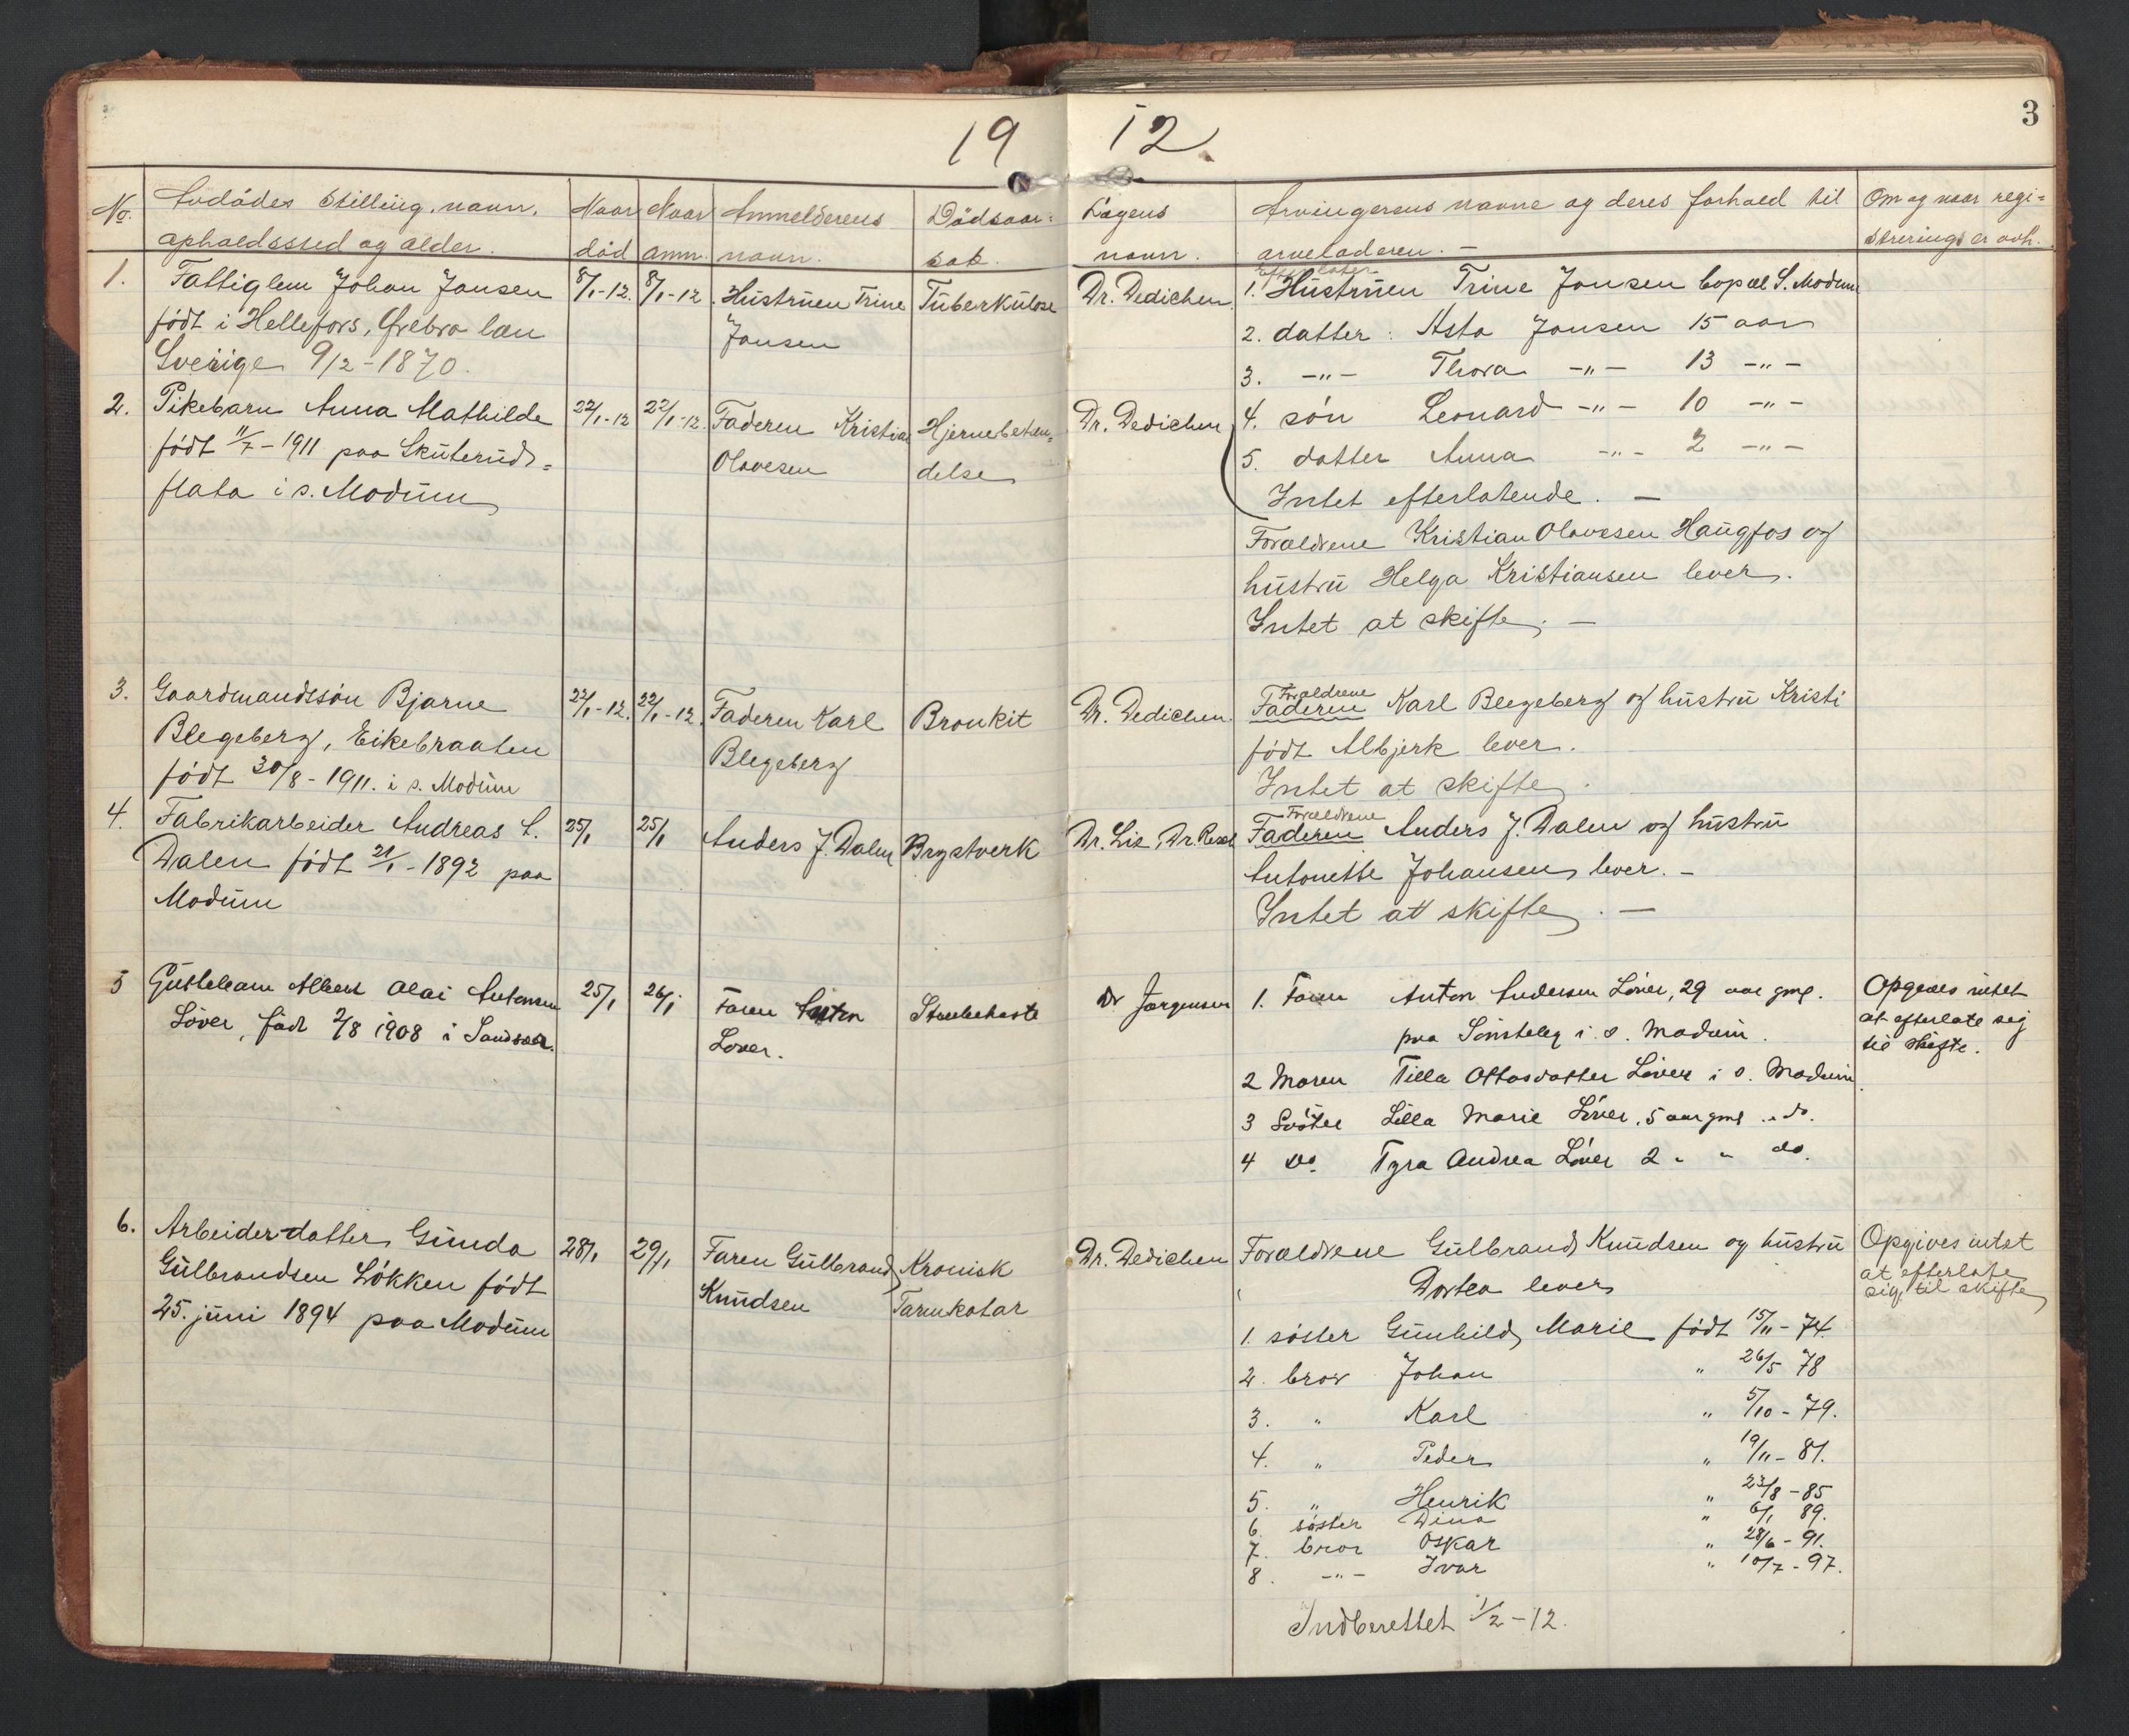 3
19 12.
No. Avdödes stilling, navn, opholdssted og alder.
Naar död
Naar anm.
Anmelderens navn.
Dödsaar= sak.
Lægens navn.
Arvingerens navne og deres forhold til arveladeren. —
Om og naar regi= strering er avh.
1. Fattiglem Johan Jansen
født i Hellefors, Örebro læn
Sverige 9/2-1870.
8/1-12. 8/1-12
Hustruen Trine
Jansen
Tuberkulose
Dr. Dedichen
Efterlater
1. Hustruen Trine Jansen Copæl S. Modum
2. datter: Asta Jansen 15 aar
3. -"- Thora -"- 13 -"-
4. søn Leonard -"- 10 -"-
5. datter Anna -"- 2 -"-
Intet efterlatende. —
2. Pikebarn Anna Mathilde
født 11/7-1911 paa Skuteruds=
flata i s. Modum
22/1-12 22/1-12.
Faderen Kristian
Olavesen
Hjernebetæn=
delse
Dr. Dedichen
Forældrene Kristian Olavesen Haugfos og
hustru Helga Kristiansen lever.
Intet at skifte. —
3. Gaardmandssön Bjarne
Blegeberg, Eikebraaten
født 30/8-1911. i s. Modum
22/1-12. 22/1-12.
Faderen Karl
Blegeberg
Bronkit
Dr. Dedichen.
Forældrene
Faderen Karl Blegeberg og hustru Kristi
født Albjerk lever.
Intet at skifte.
4. Fabrikarbeider Andreas A.
Dalen født 21/1-1892 paa
Modum
25/1 25/1
Anders J. Dalen
Brystverk
Dr. Lie, Dr.
Forældrene
Faderen Anders J. Dalen og hustru
Antonette Johansen lever. —
Intet at skifte. —
5 Guttebarn Albert Olai Antonsen
Löver, född 2/8 1908 i Sandsvær.
25/1 26/1
Faren Anton
Löver.
Strubehoste
Dr Jørgensen
1. Faren Anton Andersen Löver, 29 aar gml.
paa i s. Modum.
2 Moren Tilla Ottosdatter Löver i s. Modum
3 Söster Lilla Marie Löver, 5 aar gml. " do.
4 do. Tyra Andrea Löver 2 " " do.
Opgives intet
at efterlate sig
til skifte.
6. Arbeider-datter Gunda
Gulbrandsen Lökken født
25. juni 1894 paa Modum
28/1 29/1
Faren Gulbrand
Knudsen
Kronisk
Tarmkatar
Dr. Dedichen
Forældrene Gulbrand Knudsen og hustru
Dortea lever
1. söster Gunhild Marie født 15/11-74.
2. bror Johan " 26/5 78
3. " Karl " 5/10-79.
4. " Peder " 19/11-81.
5. " Henrik " 23/8-85
6. söster Dina " 6/1 89.
7. bror Oskar " 28/6-91.
8. -"- Ivar " 10/7-97.
Opgives intet
at efterlate
sig til skifte
Indberettet 1/2-12.